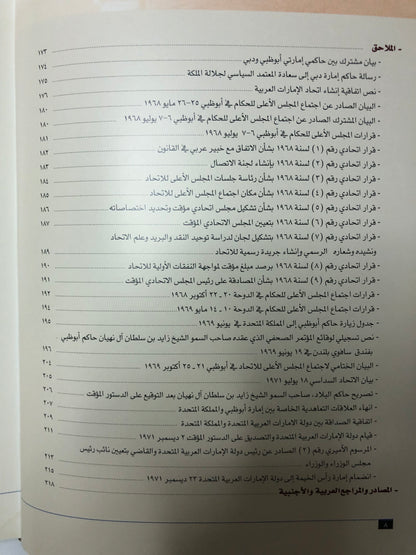 - الملاحق ١٧٣
- بيان مشترك بين حاكمي إمارتي أبوظبي ودبي ١٧٤
- رسالة حاكم إمارة دبي إلى سعادة المعتمد السياسي لجلالة الملكة ١٧٥
- نص اتفاقية إنشاء اتحاد الإمارات العربية ١٧٦
- البيان الصادر عن اجتماع المجلس الأعلى للحكام في أبوظبي ٢٥-٢٦ مايو ١٩٦٨ ١٨٠
- البيان المشترك الصادر عن اجتماع المجلس الأعلى للحكام في أبوظبي ٦-٧ يوليو ١٩٦٨ ١٨٠
- قرارات اجتماع المجلس الأعلى للحكام في أبوظبي ٦-٧ يوليو ١٩٦٨ ١٨١
- قرار اتحادي رقم (١) لسنة ١٩٦٨ بشأن الاتفاق مع خبير عربي في القانون ١٨٢
- قرار اتحادي رقم (٢) لسنة ١٩٦٨ بإنشاء لجنة الاتصال ١٨٣
- قرار اتحادي رقم (٣) لسنة ١٩٦٨ بشأن رئاسة جلسات المجلس الأعلى للاتحاد ١٨٤
- قرار اتحادي رقم (٤) لسنة ١٩٦٨ بشأن مكان اجتماع المجلس الأعلى للاتحاد ١٨٥
- قرار اتحادي رقم (٥) لسنة ١٩٦٨ بشأن تشكيل مجلس اتحادي مؤقت وتحديد اختصاصاته
- قرار اتحادي رقم (٦) لسنة ١٩٦٨ بتعيين المجلس الاتحادي المؤقت ١٨٧
- قرار اتحادي رقم (٧) لسنة ١٩٦٨ بتشكيل لجان لدراسة توحيد النقد والبريد وعلم الاتحاد
ونشيده وشعاره الرسمي وإنشاء جريدة رسمية للاتحاد
- قرار اتحادي رقم (٨) لسنة ١٩٦٨ برصد مبلغ مؤقت لمواجهة النفقات الأولية للاتحاد ١٩٠
- قرار اتحادي رقم (٩) لسنة ١٩٦٨ بشأن المصادقة على رئيس المجلس الاتحادي المؤقت ١٩١
- قرارات اجتماع المجلس الأعلى للحكام في الدوحة ٢٠-٢٢ أكتوبر ١٩٦٨
- قرارات اجتماع المجلس الأعلى للحكام في الدوحة ١٠-١٤ مايو ١٩٦٩ ١٩٤
- جدول زيارة حاكم أبوظبي إلى المملكة المتحدة في يونيو ١٩٦٩ ١٩٥
- نص تسجيلي لوقائع المؤتمر الصحفي الذي عقده صاحب السمو الشيخ زايد بن سلطان آل نهيان حاكم أبوظبي
بفندق سافوي بلندن في ١٩ يونيو ١٩٦٩ ١٩٦
- البيان الختامي لاجتماع المجلس الأعلى للاتحاد في أبوظبي ٢١-٢٥ أكتوبر ١٩٦٩
- بيان الاتحاد السداسي ١٨ يوليو ١٩٧١
- تصريح حاكم البلاد، صاحب السمو الشيخ زايد بن سلطان آل نهيان بعد التوقيع على الدستور المؤقت
- انهاء العلاقات التعاهدية الخاصة بين إمارة أبوظبي والمملكة المتحدة
- اتفاقية الصداقة بين دولة الامارات العربية المتحدة والمملكة المتحدة
- قيام دولة الإمارات العربية المتحدة والتصديق على الدستور المؤقت ٢ ديسمبر ١٩٧١ ٢١١
- المرسوم الأميري رقم (٢) الصادر عن رئيس دولة الإمارات العربية المتحدة والقاضي بتعيين نائب رئيس
مجلس الوزراء والوزراء
- انضمام إمارة رأس الخيمة إلى دولة الإمارات العربية المتحدة ٢٣ ديسمبر ١٩٧١ ٢١٥
- المصادر والمراجع العربية والأجنبية ٢١٨
٨